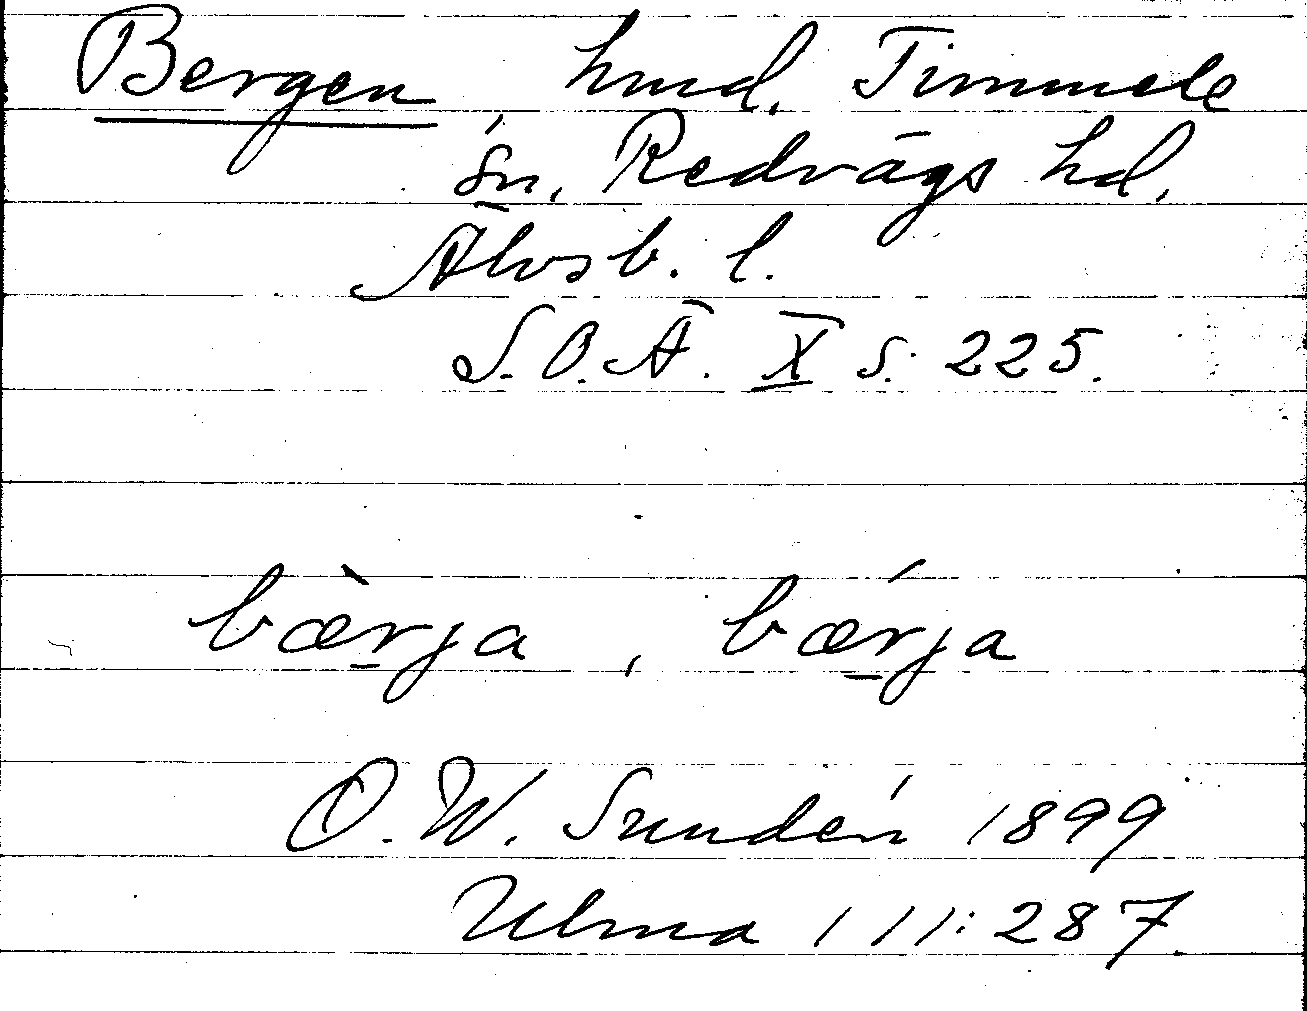 Bergen hmd. Timmele
sn, Redvägs hd.
Älvsb. l.
S.O.Ä. X s. 225.
bæ̀rja, bǽrja
O. W. Sundén 1899
Ulma 111:287